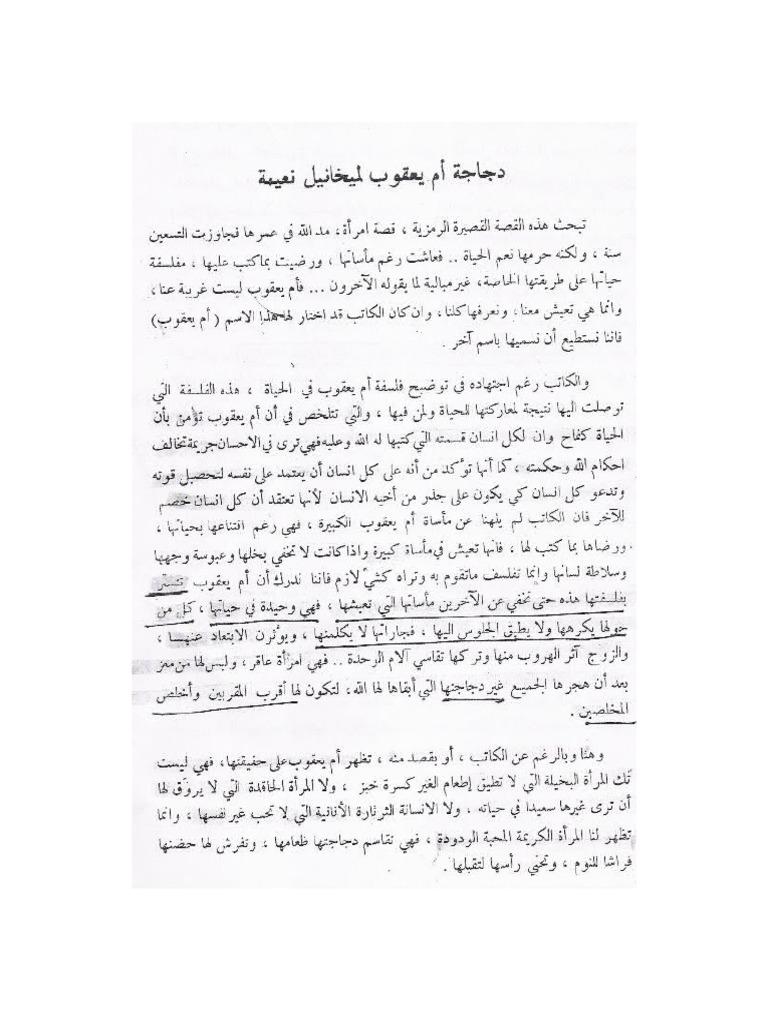 دجاجة أم يعقوب لميخائيل نعيمة
تبحث هذه القصة القصيرة الرمزية ، قصة امرأة، مد الله في عمرها فجاوزت التسعين
سنة ، ولكنه حرمها نعم الحياة .. فعاشت رغم مأساتها ، ورضيت بما كتب عليها ، مفلسفة
حياتها على طريقتها الخاصة، غير مبالية لما يقوله الآخرون ... فأم يعقوب ليست غريبة عنا،
وانما هي تعيش معنا، ونعرفها كلنا، وان كان الكاتب قد اختار لها هذا الاسم ( أم يعقوب)
فاننا نستطيع أن نسميها باسم آخر .
والكاتب رغم اجتهاده في توضيح فلسفة أم يعقوب في الحياة ، هذه الفلسفة التي
توصلت اليها نتيجة لمعاركتها للحياة ولمن فيها ، والتي تتلخص في أن أم يعقوب تؤمن بأن
الحياة كفاح وان لكل انسان قسمته التي كتبها له الله وعليه فهي ترى في الاحسان جريمة تخالف
احكام الله وحكمته ، كما أنها تؤكد من أنه على كل انسان أن يعتمد على نفسه لتحصيل قوته
وتدعو كل انسان كي يكون على حذر من أخيه الانسان لأنها تعتقد أن كل انسان خصم
للآخر فان الكاتب لم يلهنا عن مأساة أم يعقوب الكبيرة ، فهي رغم اقتناعها بحياتها ،
ورضاها بما كتب لها ، فانها تعيش في مأساة كبيرة واذا كانت لا تخفي بخلها وعبوسة وجهها
وسلاطة لسانها وانما تفلسف ماتقوم به وتراه كشيء لازم فاننا ندرك أن أم يعقوب تتستر
بفلسفتها هذه حتى تخفي عن الآخرين مأساتها التي تعيشها ، فهي وحيدة في حياتها ، كل من
حولها يكرهها ولا يطيق الجلوس اليها ، فجاراتها لا يكلمنها ، ويؤثرن الابتعاد عنهـا ،
والزوج آثر الهروب منها وتركها تقاسي آلام الوحدة .. فهي امرأة عاقر، وليس لها من معز
بعد أن هجرها الجميع غير دجاجتها التي أبقاها لها الله، لتكون لها أقرب المقربين وأخلص
المخلصين .
وهنا وبالرغم عن الكاتب ، أو بقصد منه ، تظهر أم يعقوب على حقيقتها، فهي ليست
تلك المرأة البخيلة التي لا تطيق إطعام الغير كسرة خبز ، ولا المرأة الحاقدة التي لا يروق لها
أن ترى غيرها سعيدا في حياته ، ولا الانسانة الثرثارة الأنانية التي لا تحب غير نفسها ، وانما
تظهر لنا المرأة الكريمة المحبة الودودة ، فهي تقاسم دجاجتها طعامها ، وتفرش لها حضنها
فراشا للنوم ، وتحني رأسها لتقبلها .